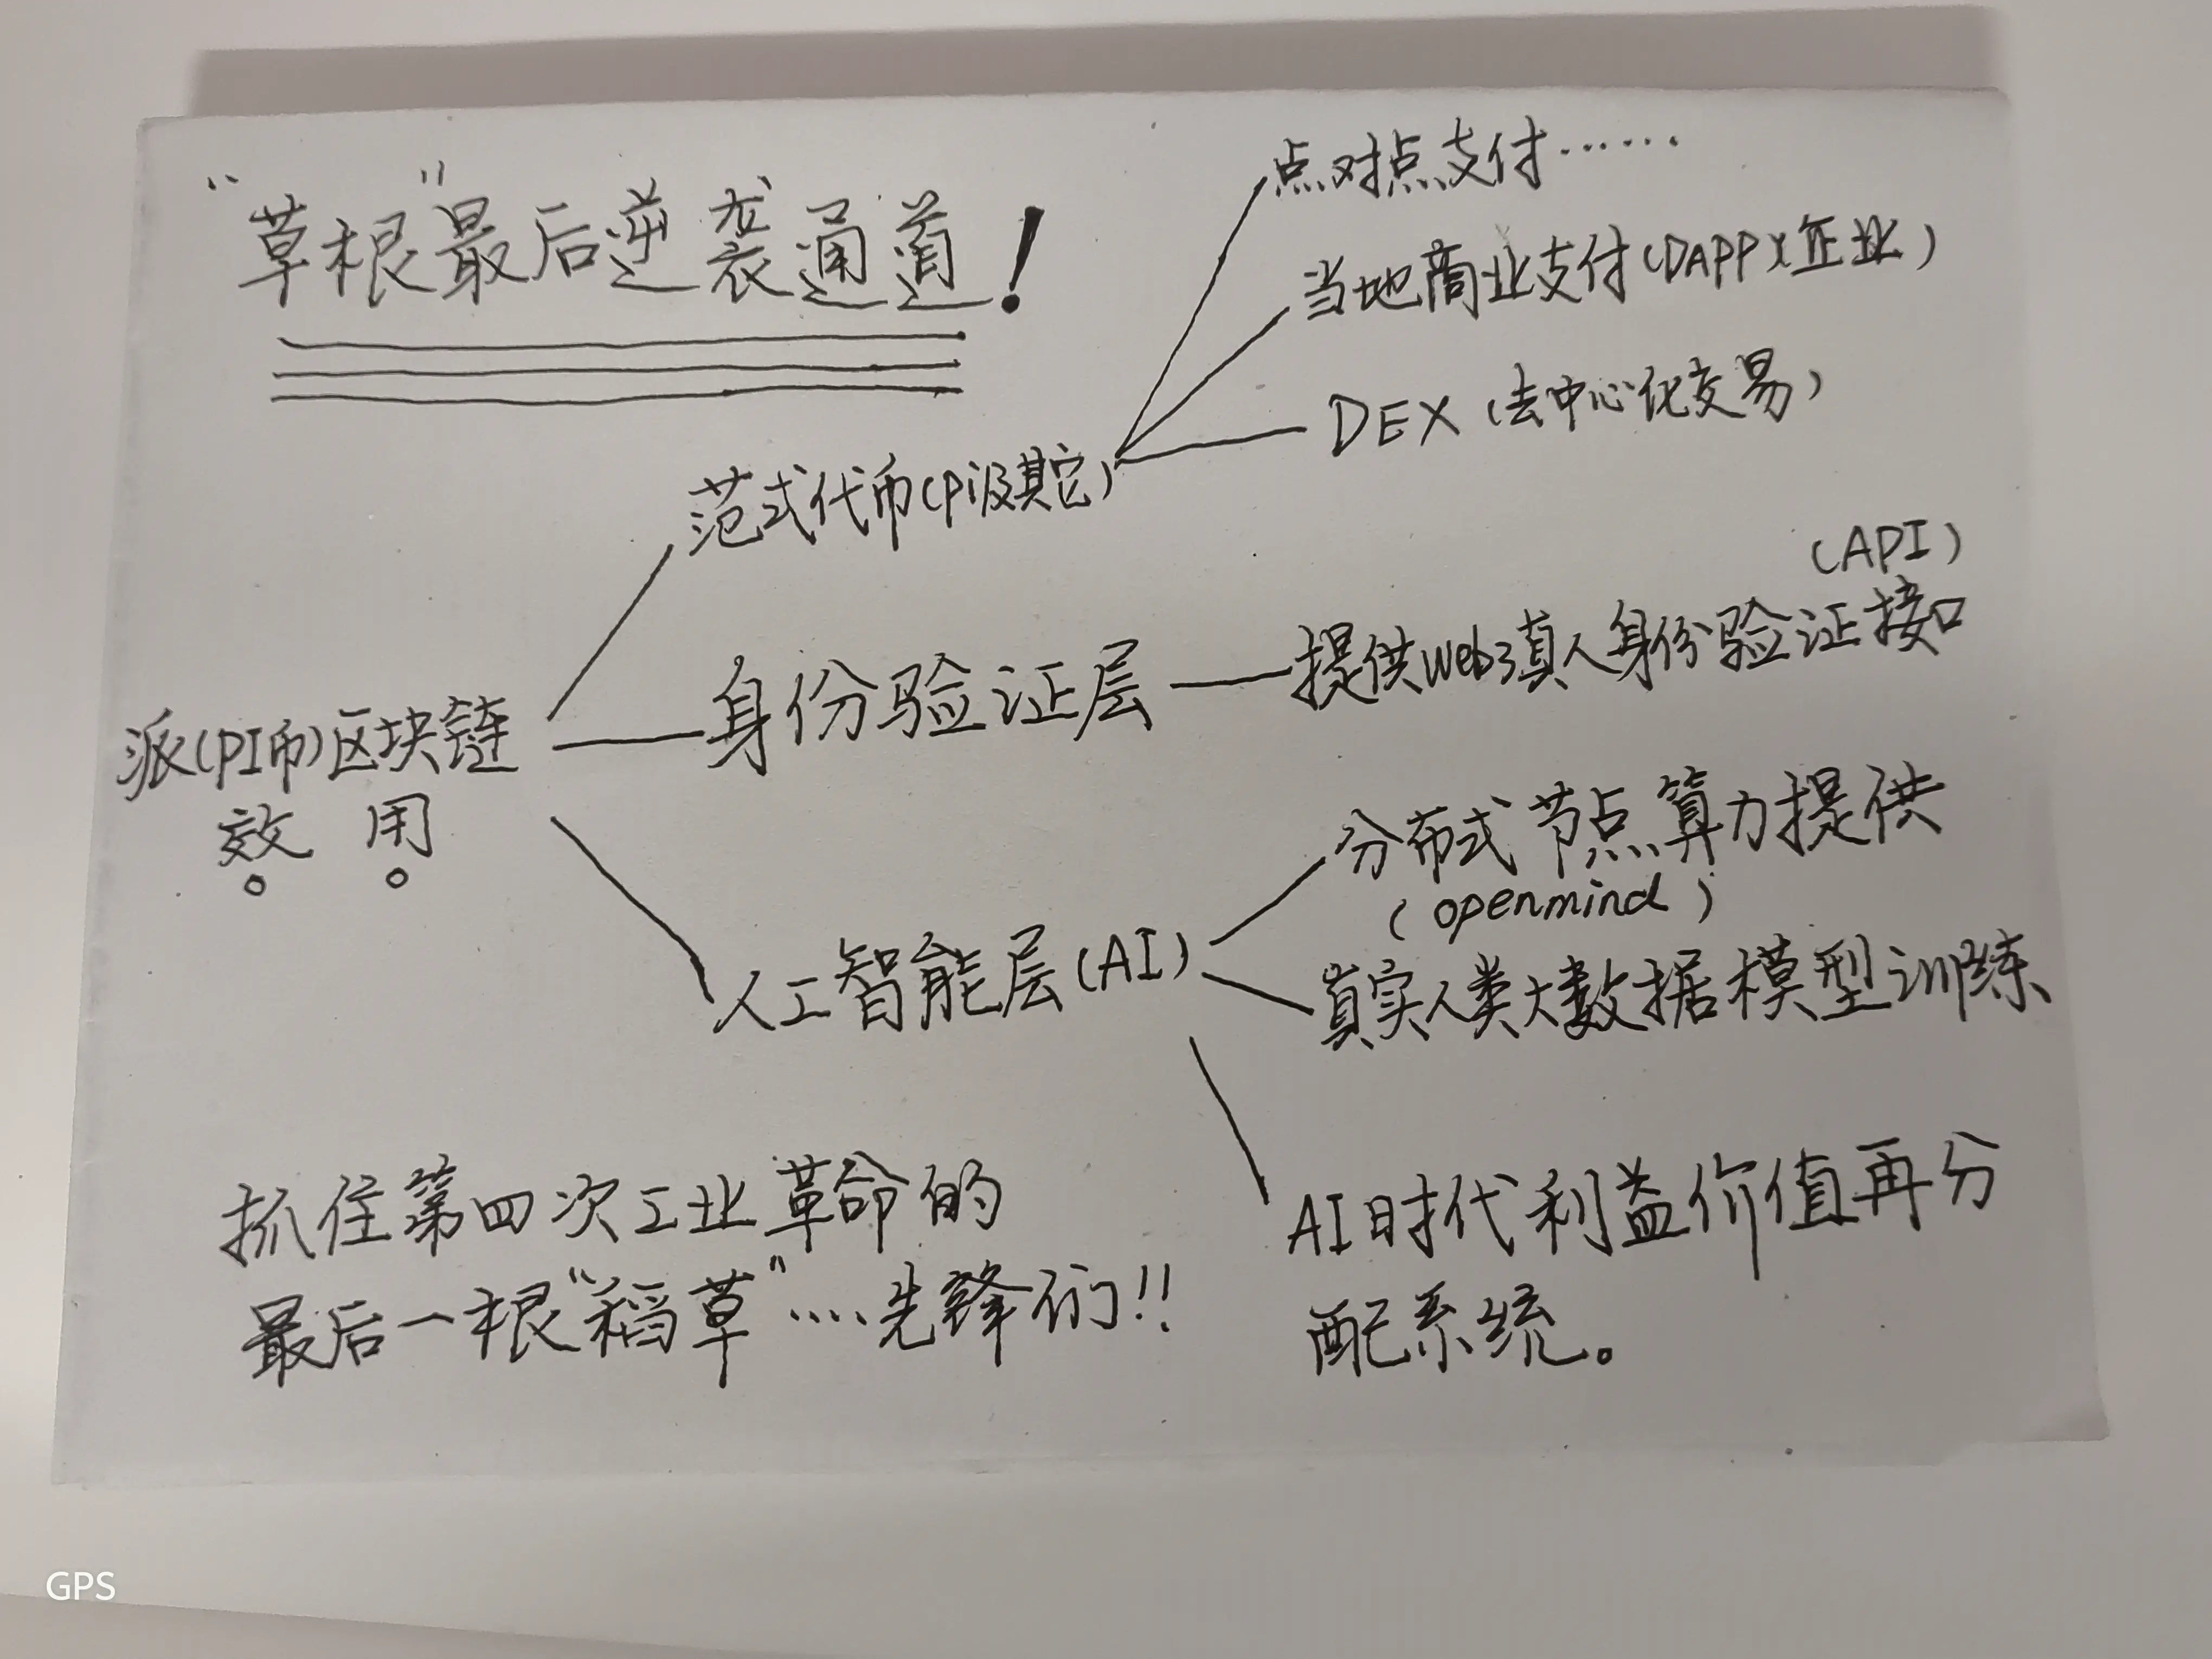 “草根”最后逆袭通道！
点对点支付……
当地商业支付(DAPP)(企业)
DEX(去中心化交易)
范式代币(Pi及其它)
(API)
身份验证层
提供Web3真人身份验证接口
派(PI币)区块链
效用
分布式节点算力提供
(openmind)
人工智能层(AI)
真实人类大数据模型训练
AI时代利益价值再分
配系统。
抓住第四次工业革命的
最后一根“稻草”....先锋们!!
GPS